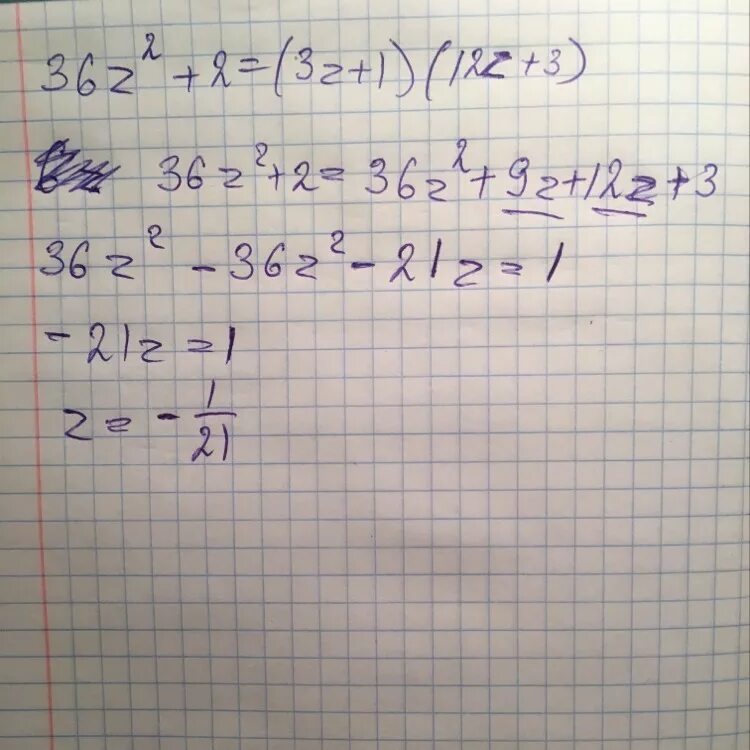 36z² + 2 = (3z+1)(12z+3)
36z² + 2 = 36z² + 9z + 12z + 3
36z² - 36z² - 21z = 1
-21z = 1
z = - 1/21